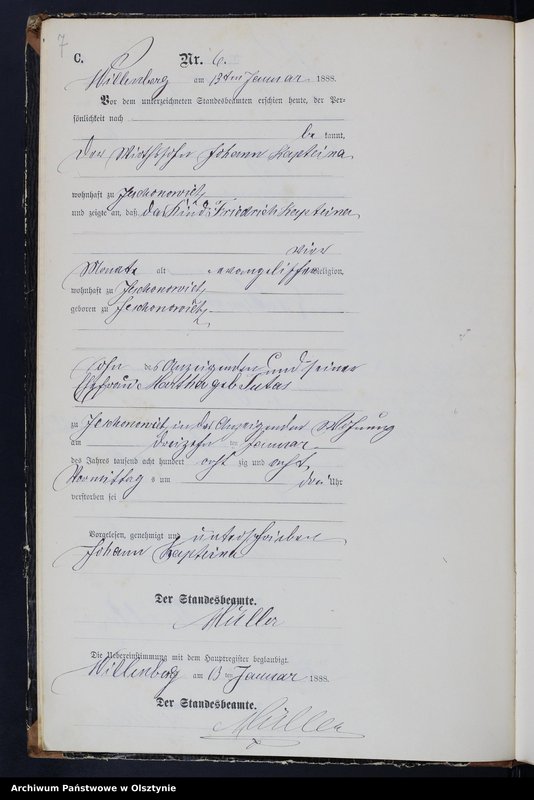 7
C.
Nr. 6.
Willenberg am 13ten Januar 1888.
Vor dem unterzeichneten Standesbeamten erschien heute, der Per-
sönlichkeit nach
be kannt,
der Wirthssohn Johann Kapteina
wohnhaft zu Jeschonowitz
und zeigte an, daß das Kind Friedrich Kapteina
vier
Monate alt evangelischer Religion,
wohnhaft zu Jeschonowitz
geboren zu Jeschonowitz
Sohn des Anzeigenden und seiner
Ehefrau Martha geb.
zu Jeschonowitz in des Anzeigenden Wohnung
am dreizehn ten Januar
des Jahres tausend acht hundert acht zig und acht
Vormittag s um drei Uhr
verstorben sei
Vorgelesen, genehmigt und unterschrieben
Johann Kapteina
Der Standesbeamte.
Müller
Die Uebereinstimmung mit dem Hauptregister beglaubigt.
Willenberg am 13 ten Januar 1888.
Der Standesbeamte.
Müller
Archiwum Państwowe w Olsztynie